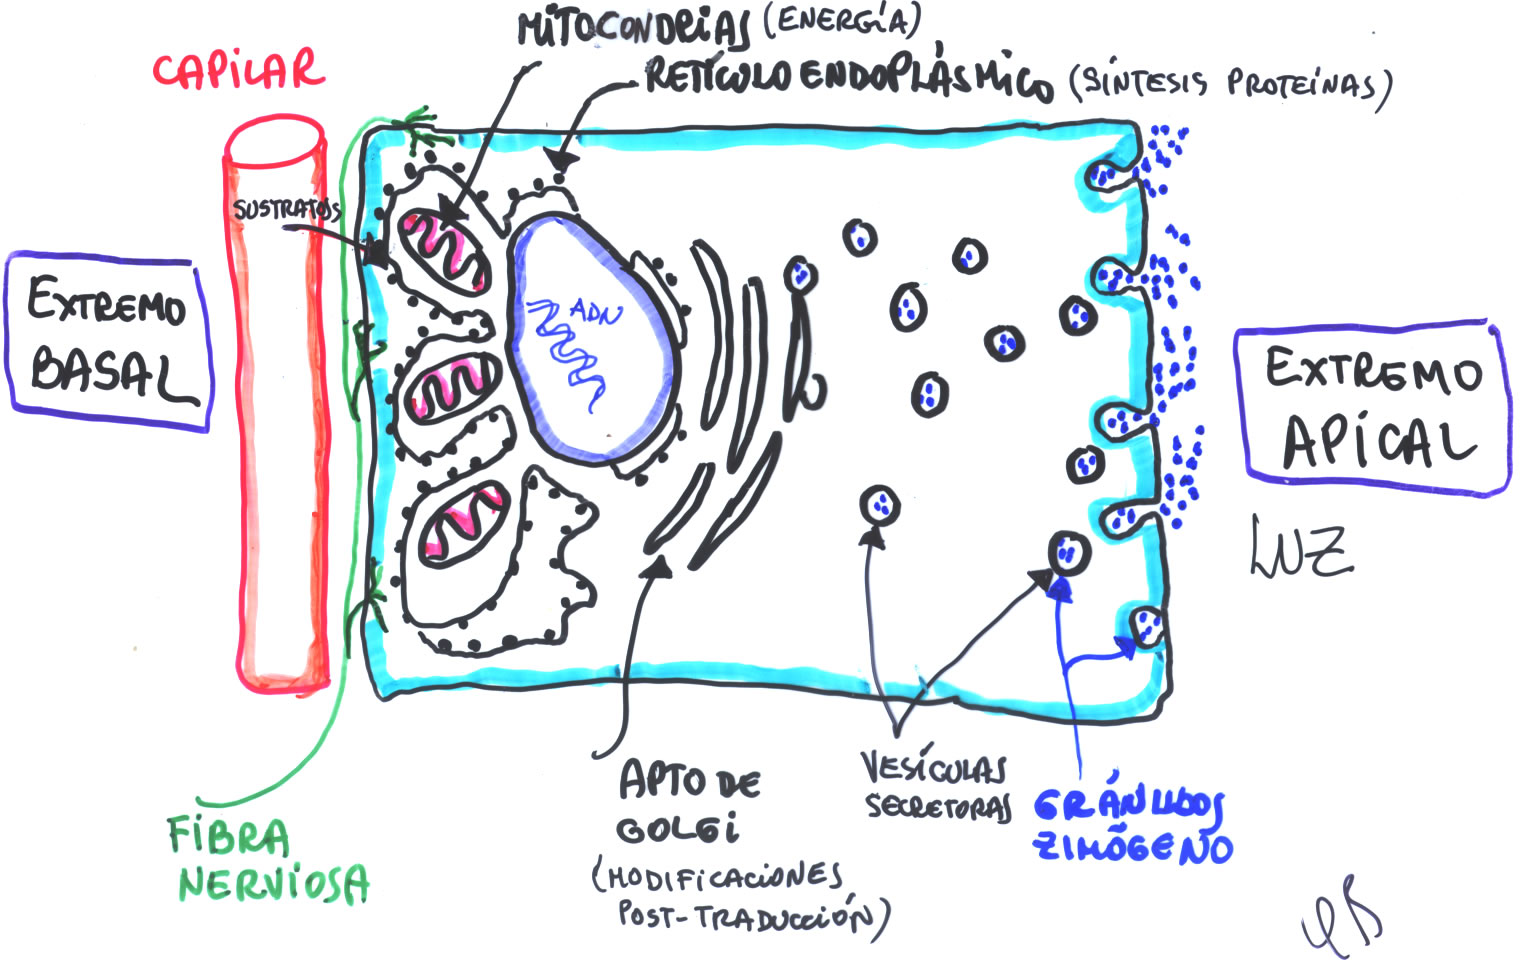 MITOCONDRIAS (ENERGÍA)
RETÍCULO ENDOPLÁSMICO (SÍNTESIS PROTEÍNAS)
CAPILAR
SUSTRATOS
EXTREMO
BASAL
ADN
EXTREMO
APICAL
LUZ
FIBRA
NERVIOSA
APTO DE
GOLGI
(MODIFICACIONES
POST-TRADUCCIÓN)
VESÍCULAS
SECRETORAS
GRÁNULOS
ZIMÓGENO